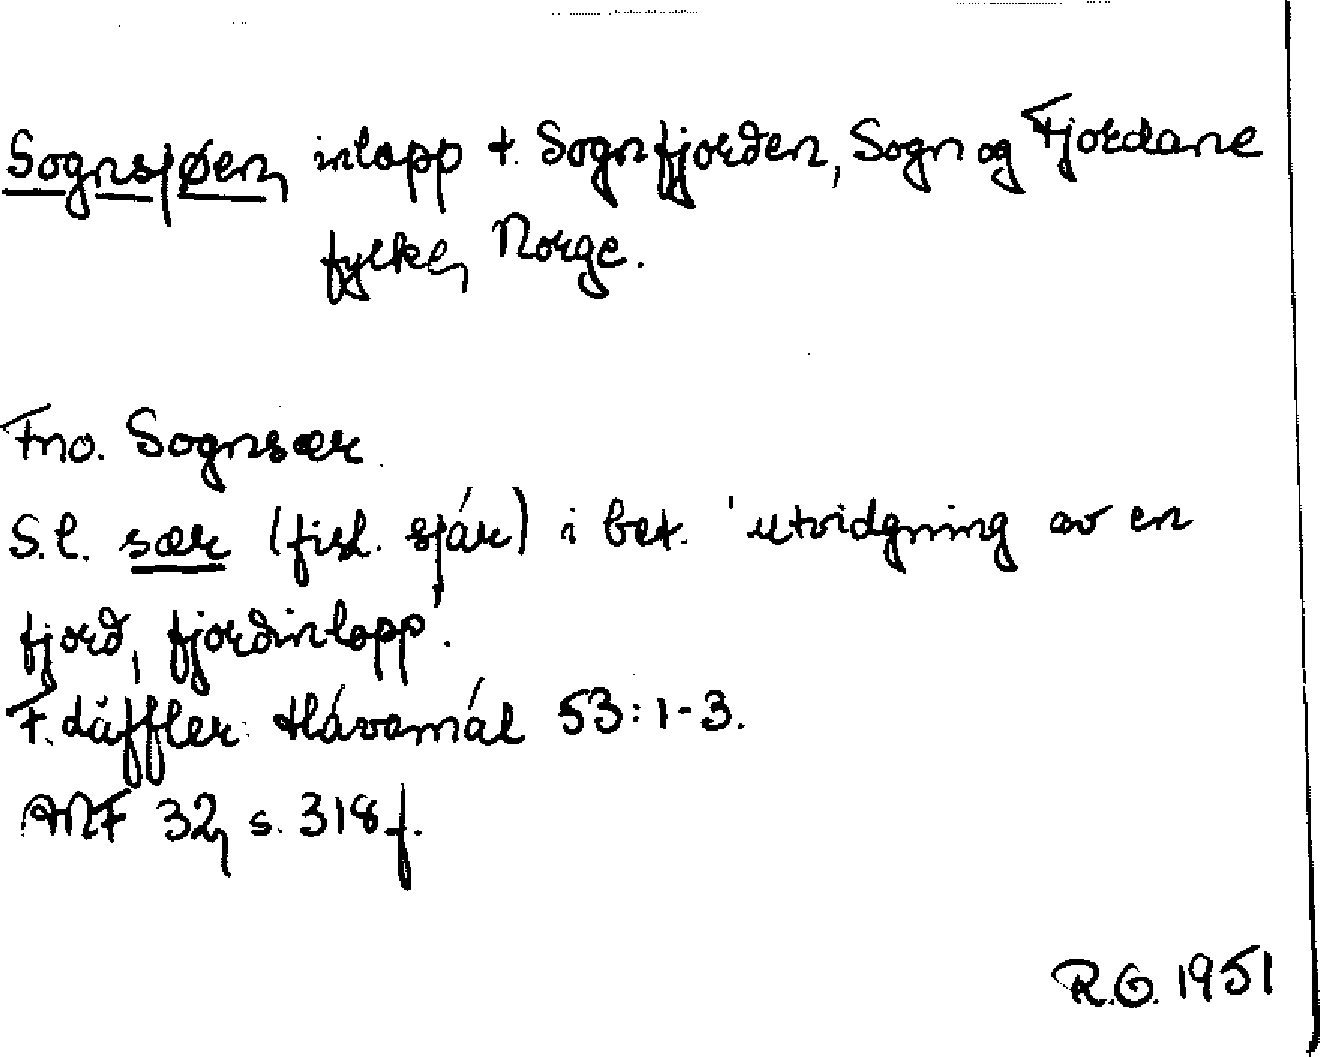 Sognsjøen, inlopp t. Sognfjorden, Sogn og Fjordane
fylke, Norge.
Fno. Sognsær
S.l. sær (fisl. sjár) i bet. 'utvidgning av en
fjord, fjordinlopp'.
F. Läffler Hávamál 53:1-3.
ANF 32, s. 318 f.
R.O. 1951